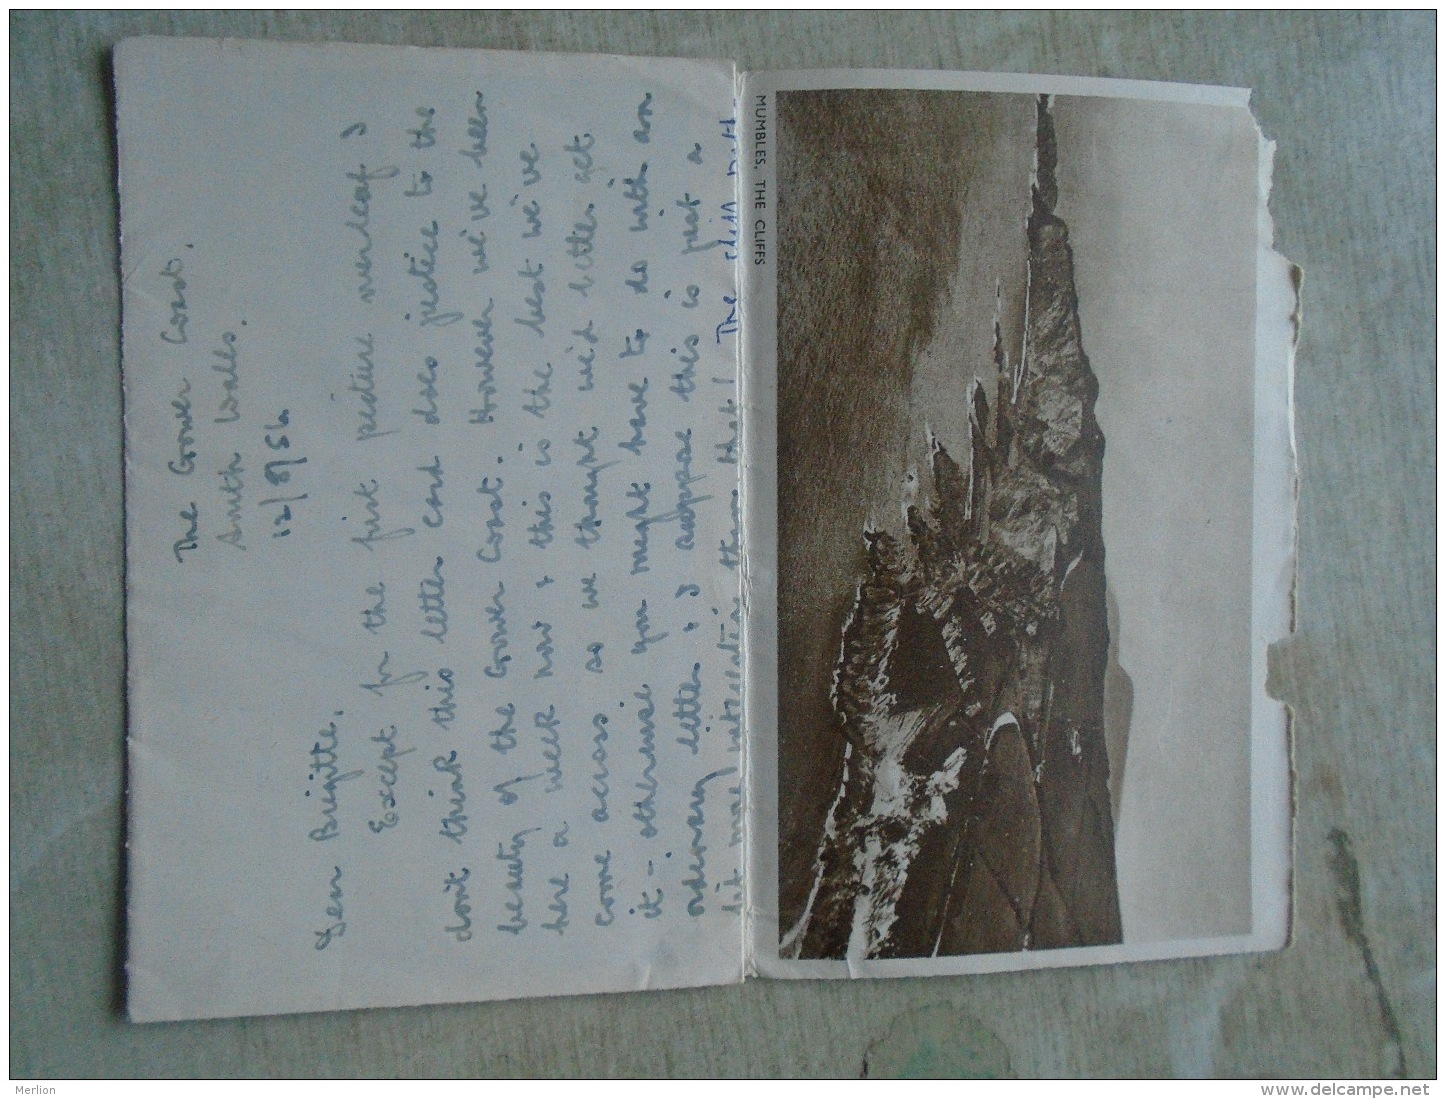 The Gower Coast,
South Wales.
12/8/56
Dear Brigitte,
Except for the first picture overleaf I
don't think this letter card does justice to the
beauty of the Gower Coast. However we've been
here a week now & this is the best we've
come across so we thought we'd better get
it - otherwise you might have to do with an
ordinary letter & I suppose this is just a
bit more interesting than that! The cliff path
MUMBLES, THE CLIFFS
Merlion
www.delcampe.net